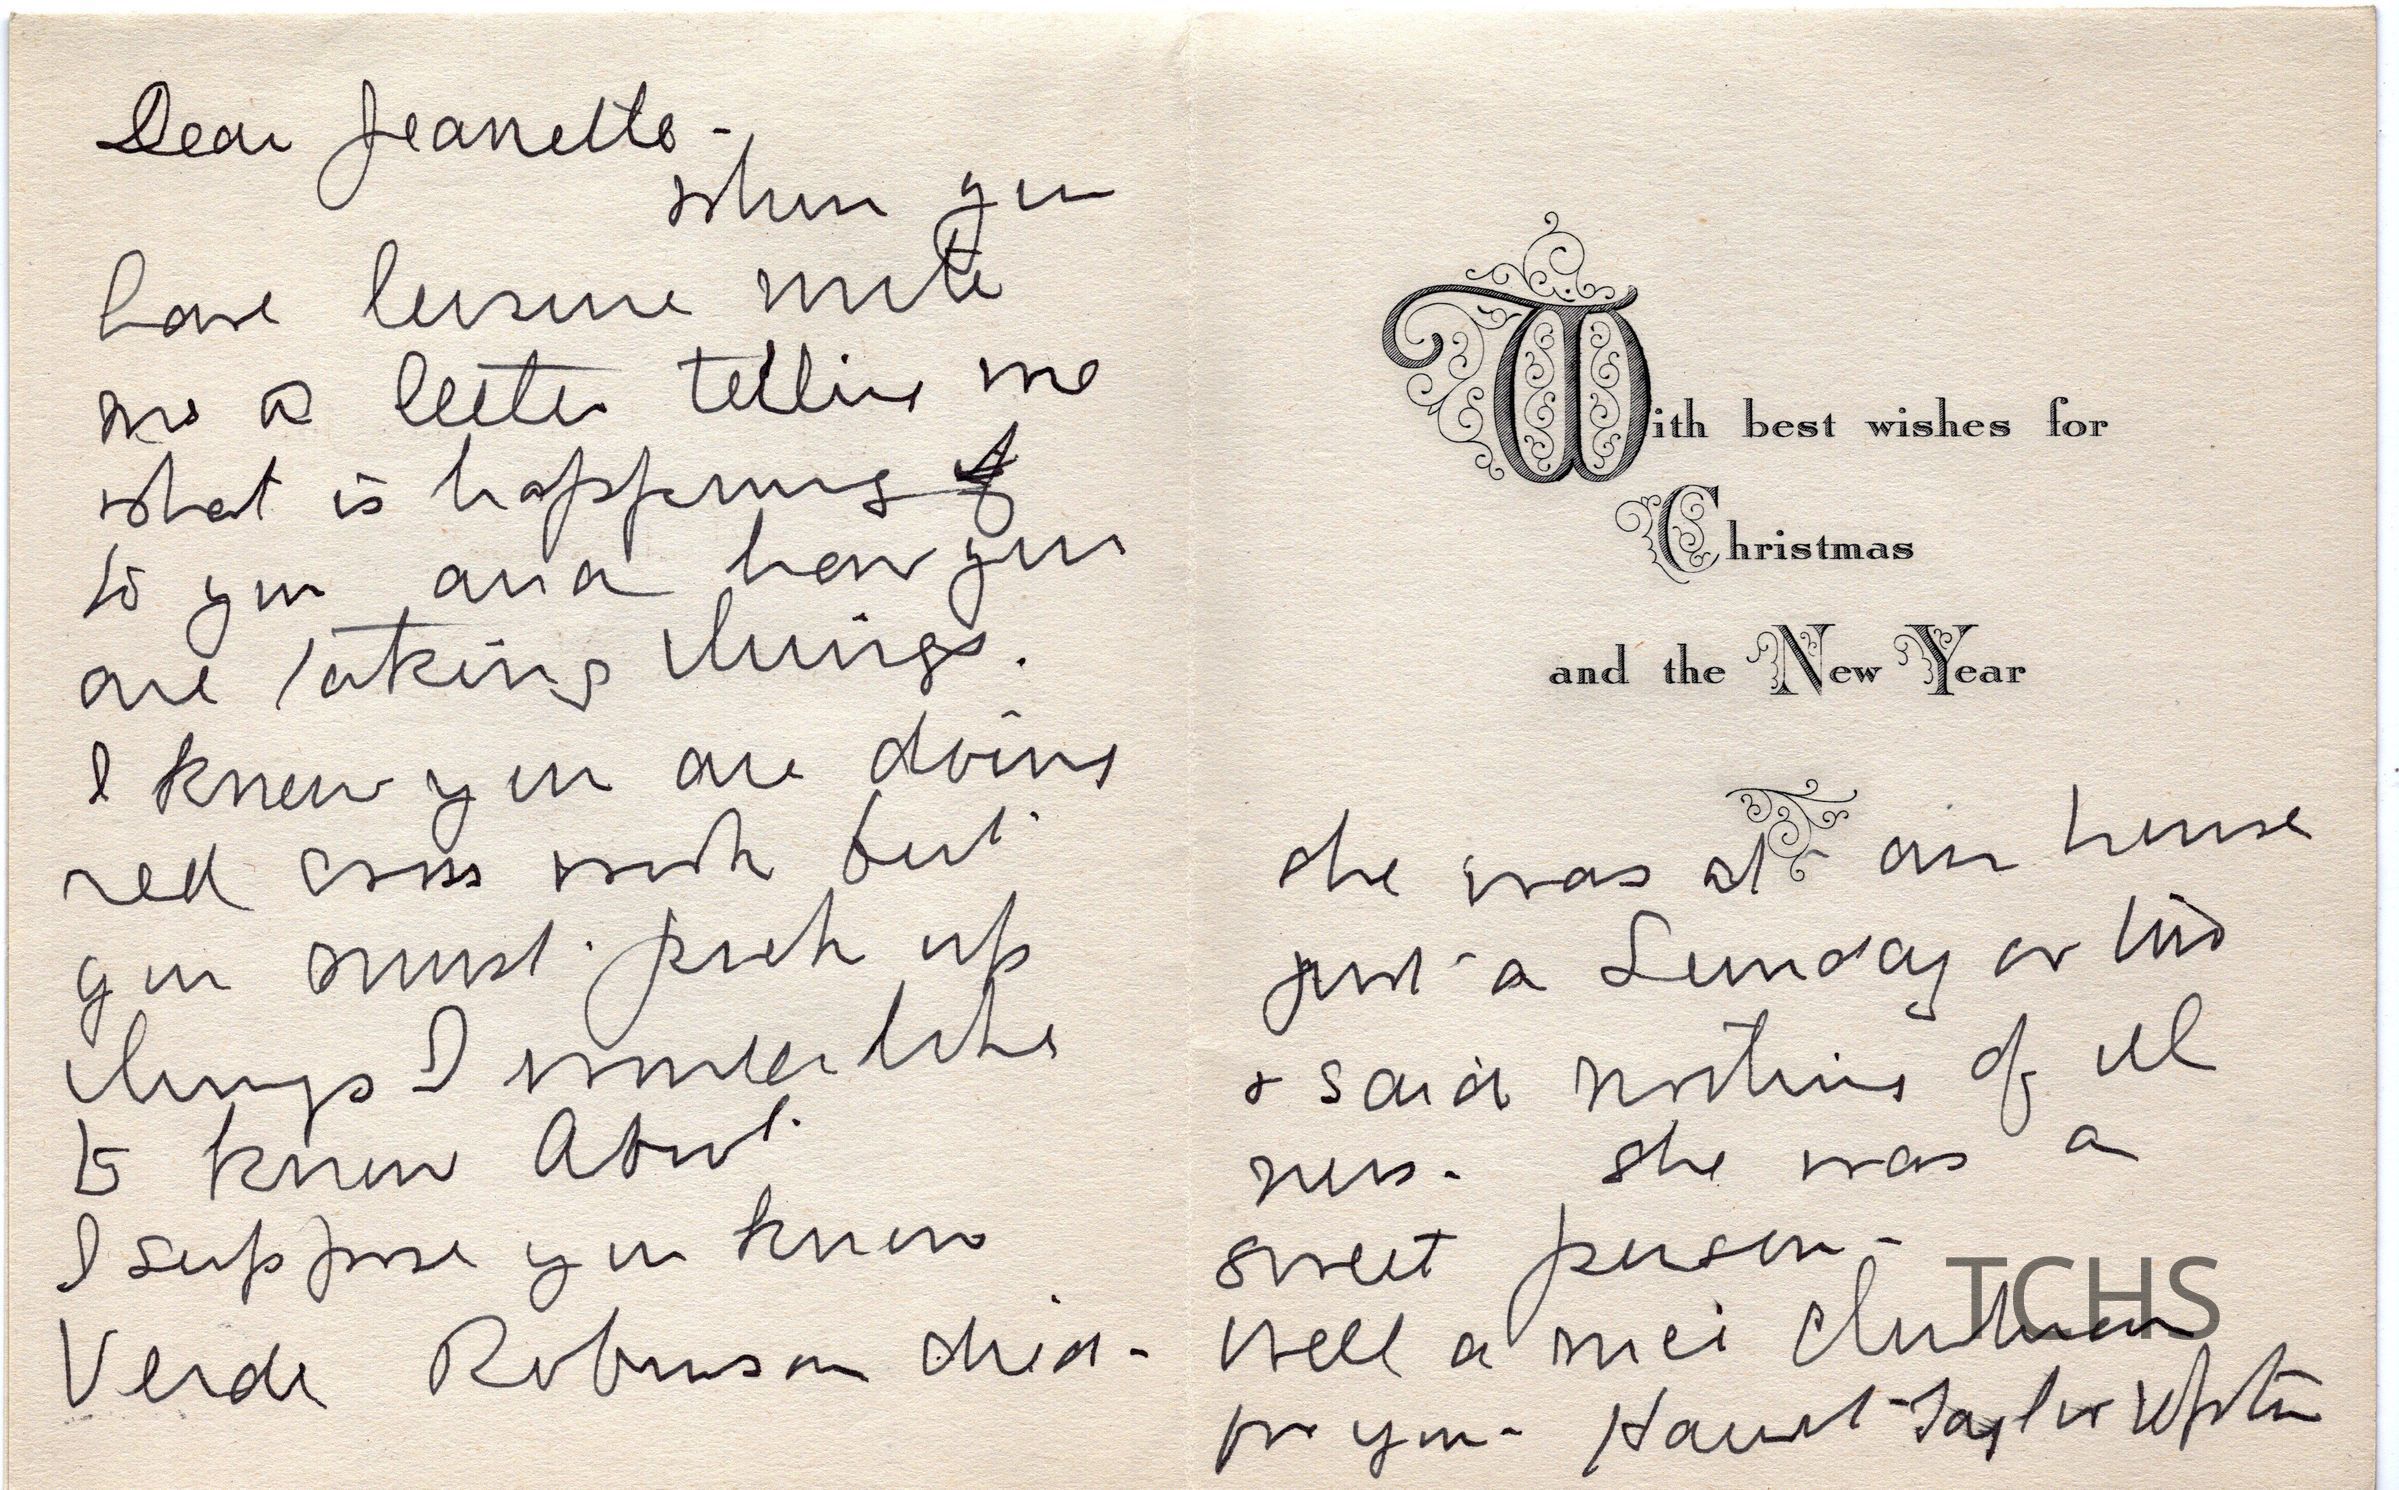 Dear Jeanette -
When you
have leisure write
me a letter telling me
what is happening
to you and how you
are taking things.
I know you are doing
red cross work but
you must pick up
things I would like
to know about.
I suppose you know
Verde Robinson died -
With best wishes for
Christmas
and the New Year
She was at our house
just a Sunday or two
& said nothing of ill
ness - She was a
sweet person -
Well a nice Christmas
for you - Harriet Taylor Upton
TCHS